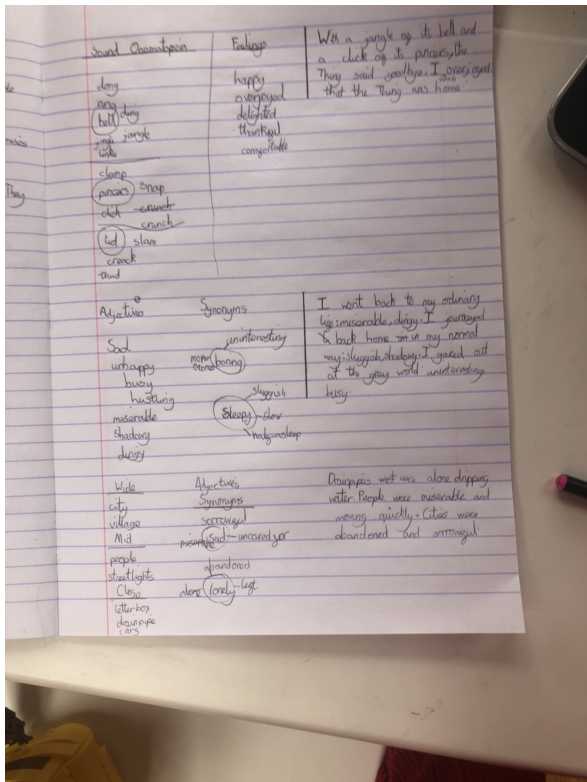 Sound Onomatopoeia
dong
bell ding
jangle
clamp
pincers snap
click crunch
crunch
lid slam
creack
thud
Feelings
happy
overjoyed
delighted
thinkful
comfortable
With a jangle of its bell and
a click of its pincers, the
Thing said goodbye. I was overjoyed
that the Thing was home.
Adjectives
Sad
unhappy
busy
hustling
miserable
shadowy
dingy
Synonyms
uninteresting
boring
sluggish
Sleepy slow
asleep
I went back to my ordinary
life: miserable, dingy. I journeyed
back home in my normal
way: sluggish, shadowy. I gazed out
at the grey world uninteresting
busy.
Wide
city
village
Mid
people
streetlights
Close
letterbox
drainpipe
cars
Adjectives
Synonyms
sorrowful
miserable Sad uncared for
abandoned
alone lonely left
Drainpipes were alone dripping
water. People were miserable and
moving quickly. Cities were
abandoned and sorrowful.